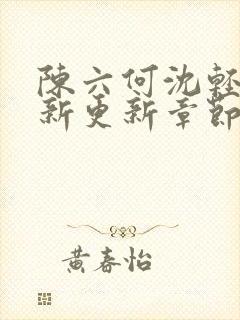 陳六何沈輕
新更新章節
黃春怡